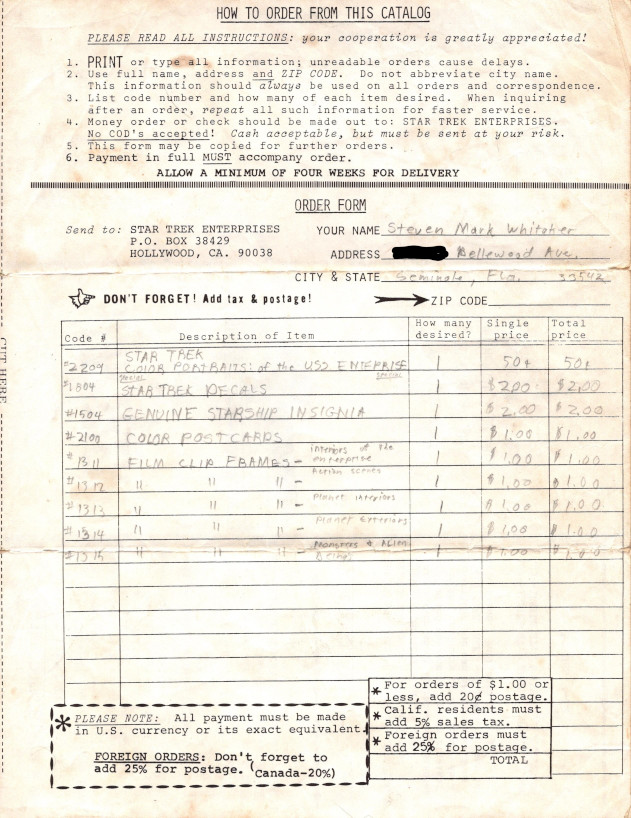 HOW TO ORDER FROM THIS CATALOG
PLEASE READ ALL INSTRUCTIONS: your cooperation is greatly appreciated!
1. PRINT or type all information; unreadable orders cause delays.
2. Use full name, address and ZIP CODE. Do not abbreviate city name.
This information should always be used on all orders and correspondence.
3. List code number and how many of each item desired. When inquiring
after an order, repeat all such information for faster service.
4. Money order or check should be made out to: STAR TREK ENTERPRISES.
No COD's accepted! Cash acceptable, but must be sent at your risk.
5. This form may be copied for further orders.
6. Payment in full MUST accompany order.
ALLOW A MINIMUM OF FOUR WEEKS FOR DELIVERY
ORDER FORM
Send to: STAR TREK ENTERPRISES
P.O. BOX 38429
HOLLYWOOD, CA. 90038
YOUR NAME Steven Mark Whitaker
ADDRESS Bellewood Ave.
CITY & STATE Seminole, Fla. 33542
DON'T FORGET! Add tax & postage!
ZIP CODE
CUT HERE
Code # Description of Item How many desired? Single price Total price
#2209 STAR TREK COLOR PORTRAITS: of the USS ENTERPRISE 1 50¢ 50¢
#1804 special STAR TREK DECALS special 1 $2.00 $2.00
#1504 GENUINE STARSHIP INSIGNIA 1 $2.00 $2.00
#2100 COLOR POSTCARDS 1 $1.00 $1.00
#1311 FILM CLIP FRAMES - interiors of the enterprise 1 $1.00 $1.00
#1312 " " " - Action scenes 1 $1.00 $1.00
#1313 " " " - Planet interiors 1 $1.00 $1.00
#1314 " " " - Planet Exteriors 1 $1.00 $1.00
#1315 " " " - Monsters & Alien 1 $1.00 $1.00
* For orders of $1.00 or
less, add 20¢ postage.
* Calif. residents must
add 5% sales tax.
* Foreign orders must
add 25% for postage.
TOTAL
* PLEASE NOTE: All payment must be made
in U.S. currency or its exact equivalent.
FOREIGN ORDERS: Don't forget to
add 25% for postage. (Canada-20%)